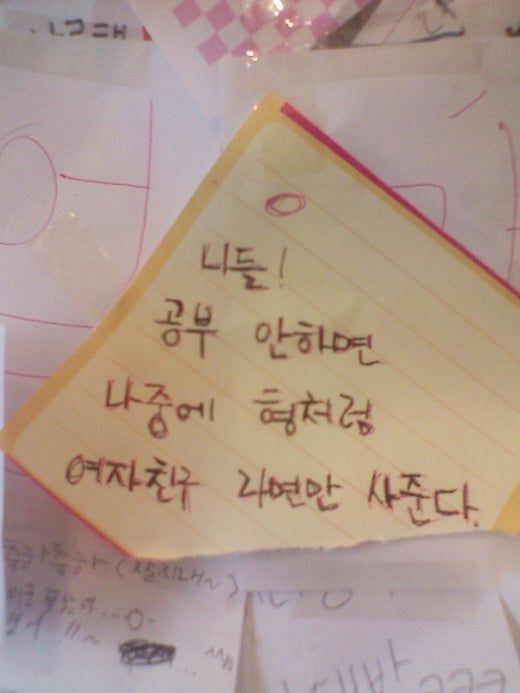 니들!
공부 안하면
나중에 형처럼
여자친구 라면만 사준다.
축하축하 (잘지내~)